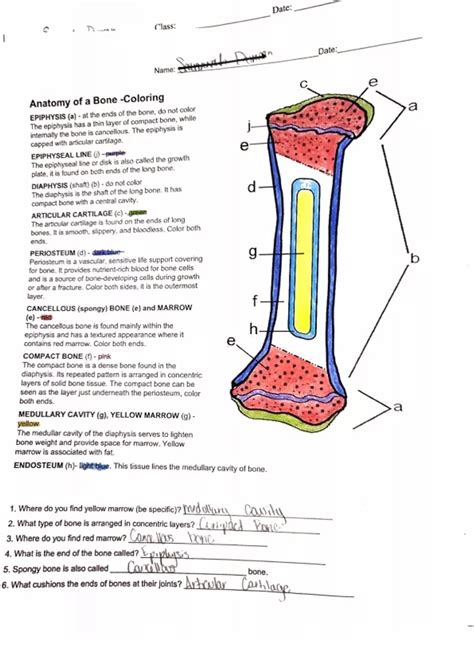 Date:
Class:
Date:
Name:
Anatomy of a Bone -Coloring
EPIPHYSIS (a) - at the ends of the bone, do not color
The epiphysis has a thin layer of compact bone, while
internally the bone is cancellous. The epiphysis is
capped with articular cartilage.
EPIPHYSEAL LINE (j) - purple
The epiphyseal line or disk is also called the growth
plate, it is found on both ends of the long bone.
DIAPHYSIS (shaft) (b) - do not color
The diaphysis is the shaft of the long bone. It has
compact bone with a central cavity.
ARTICULAR CARTILAGE (c) - green
The articular cartilage is found on the ends of long
bones. It is smooth, slippery, and bloodless. Color both
ends.
PERIOSTEUM (d) - dark blue
Periosteum is a vascular, sensitive life support covering
for bone. It provides nutrient-rich blood for bone cells
and is a source of bone-developing cells during growth
or after a fracture. Color both sides, it is the outermost
layer.
CANCELLOUS (spongy) BONE (e) and MARROW
(e) - red
The cancellous bone is found mainly within the
epiphysis and has a textured appearance where it
contains red marrow. Color both ends.
COMPACT BONE (f) - pink
The compact bone is a dense bone found in the
diaphysis. Its repeated pattern is arranged in concentric
layers of solid bone tissue. The compact bone can be
seen as the layer just underneath the periosteum, color
both ends.
MEDULLARY CAVITY (g), YELLOW MARROW (g) -
yellow
The medullar cavity of the diaphysis serves to lighten
bone weight and provide space for marrow. Yellow
marrow is associated with fat.
ENDOSTEUM (h)- light blue. This tissue lines the medullary cavity of bone.
c
e
a
j
e
d
b
g
f
h
e
a
1. Where do you find yellow marrow (be specific)? medullary Cavity
2. What type of bone is arranged in concentric layers? Compact Bone
3. Where do you find red marrow? bone
4. What is the end of the bone called? Epiphysis
5. Spongy bone is also called bone.
6. What cushions the ends of bones at their joints? Articular Cartilage